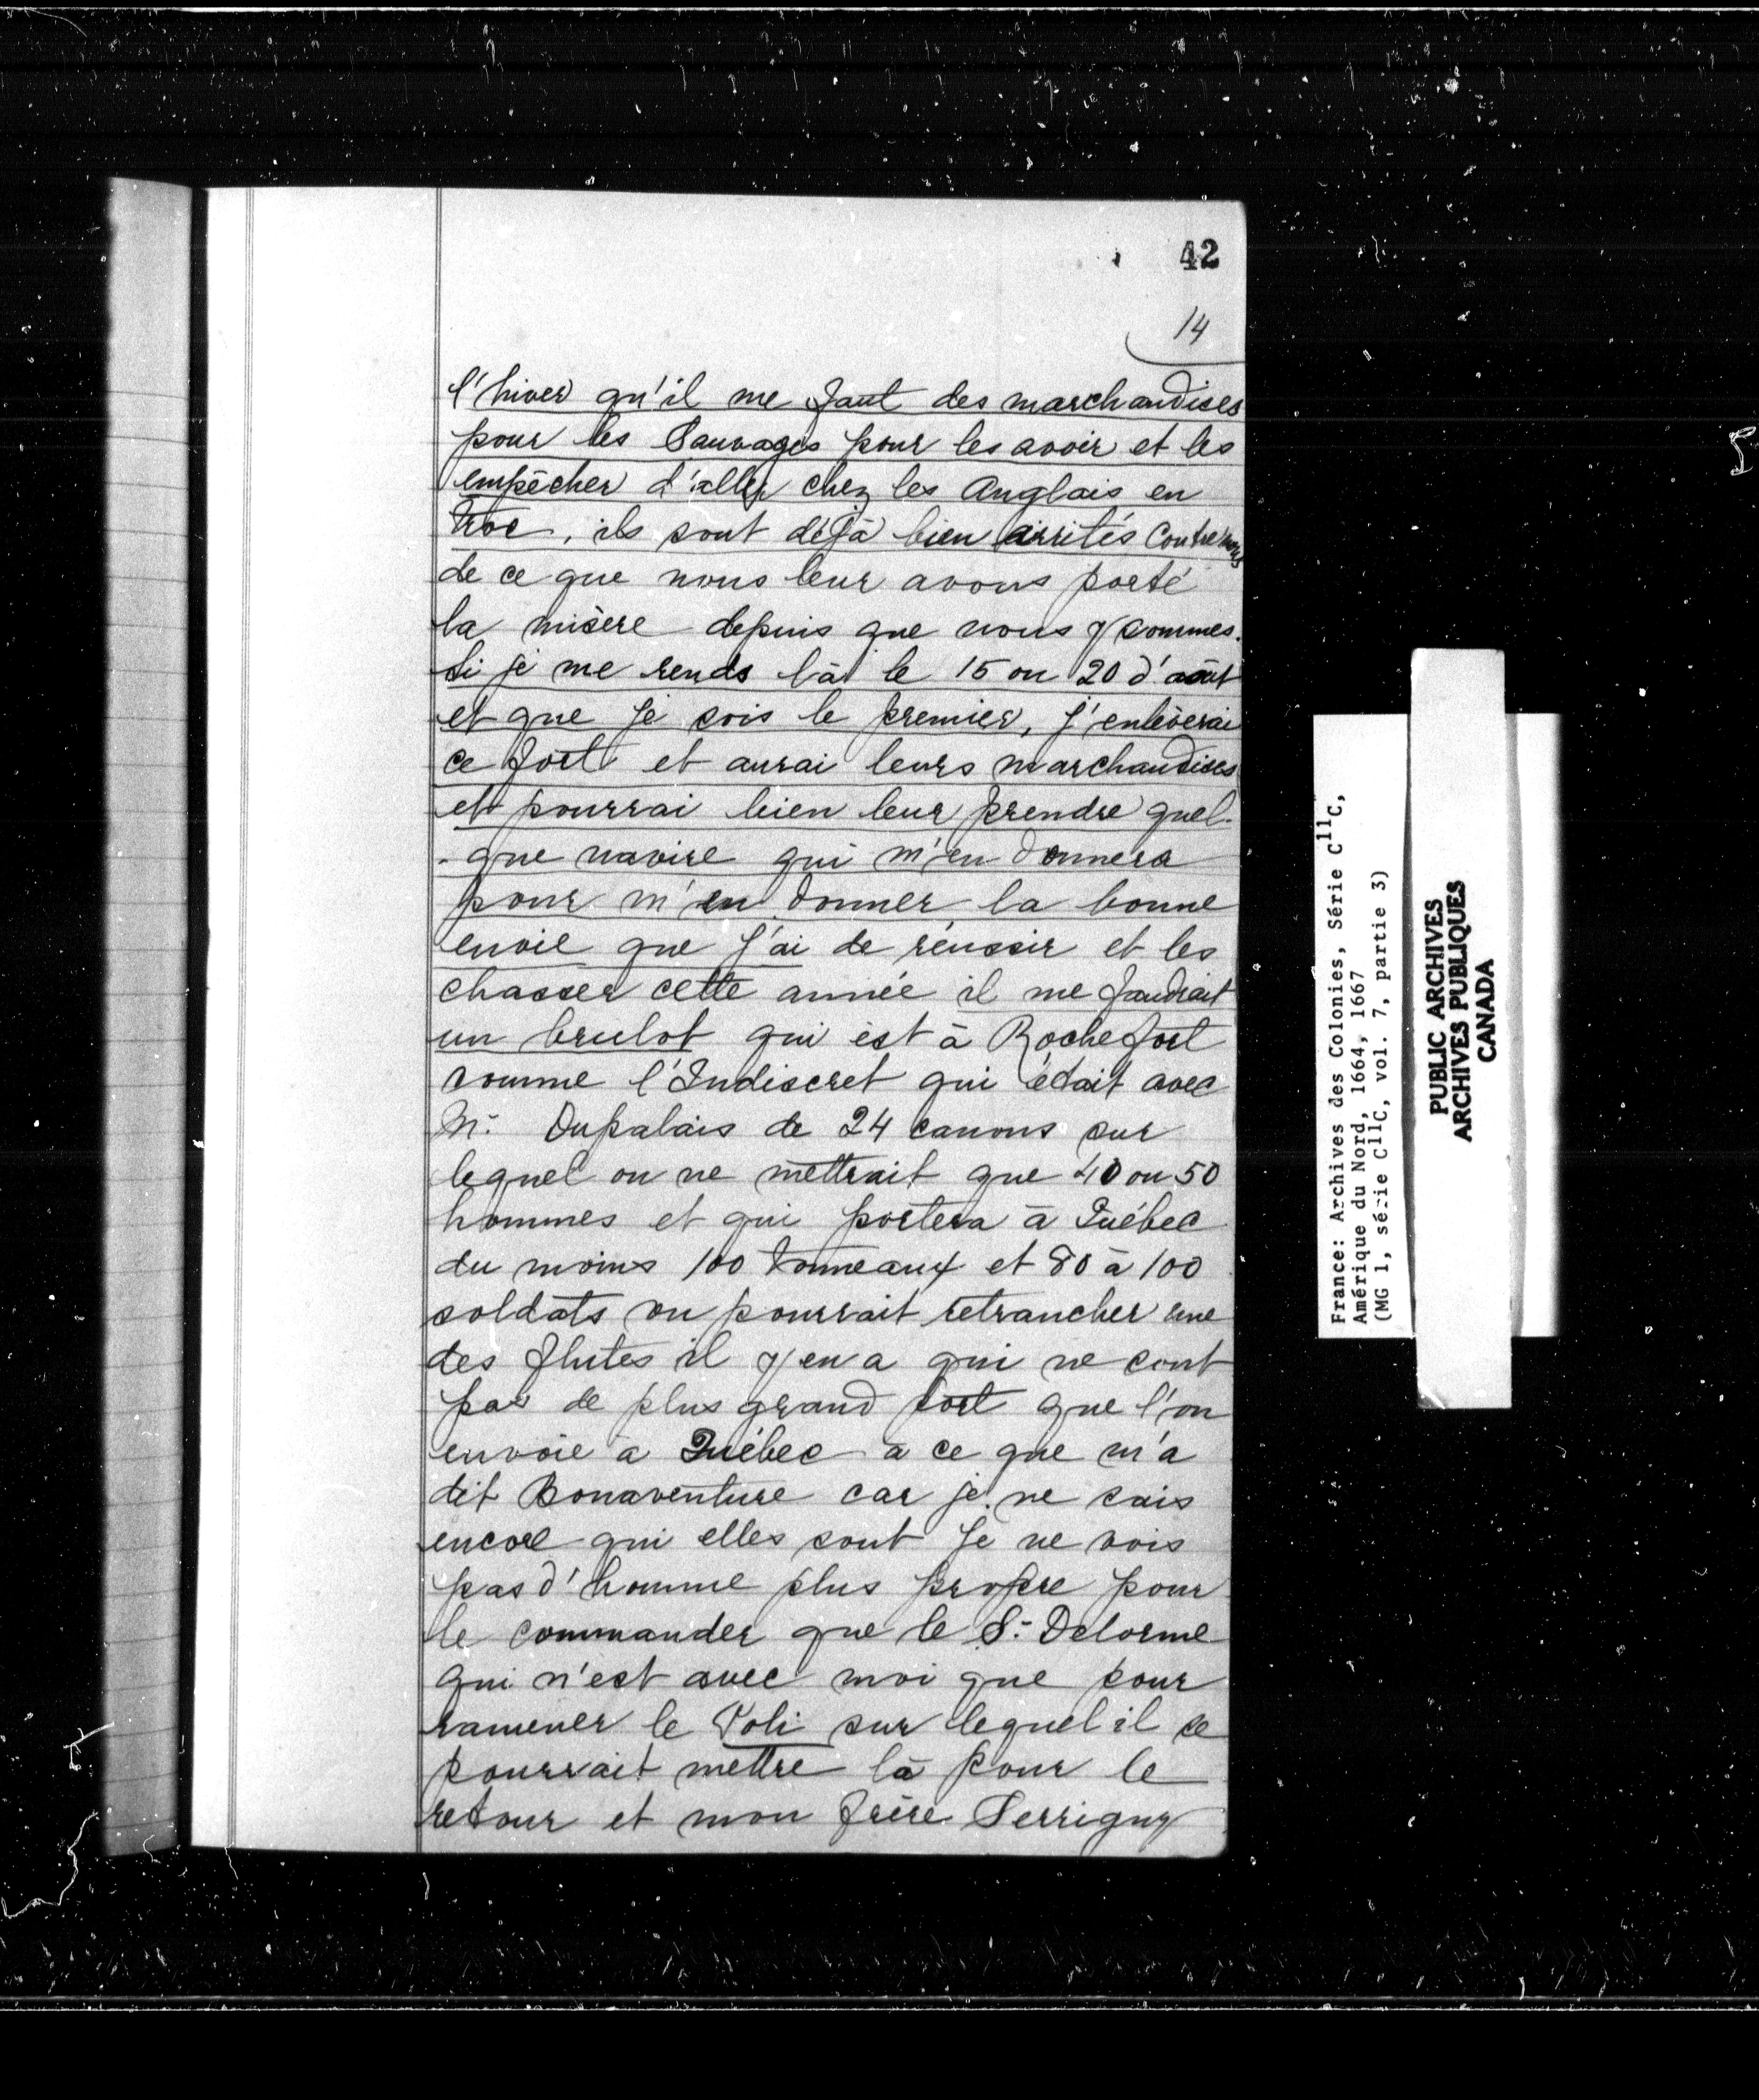 42
14
l'hiver qu'il me faut des marchandises
pour les Sauvages pour les avoir et les
empêcher d'aller chez les Anglais en
troc, ils sont déjà bien irrités contre nous
de ce que nous leur avons porté
la misère depuis que nous y sommes.
Si je me rends là le 15 ou 20 d'août
et que je sois le premier, j'enlèverai
ce fort et aurai leurs marchandises
et pourrai bien leur prendre quel-
-que navire qui m'en donnera
pour m'en donner la bonne
envie que j'ai de réussir et les
chasser cette année il me faudrait
un brulot qui est à Rochefort
comme l'Indiscret qui était avec
Mr. Dupalais de 24 canons sur
lequel on ne mettrait que 40 ou 50
hommes et qui portera à Québec
du moins 100 tonneaux et 80 à 100
soldats on pourrait retrancher une
des flutes il y en a qui ne sont
pas de plus grand port que l'on
envoie à Québec à ce que m'a
dit Bonaventure car je ne sais
encore qui elles sont je ne vois
pas d'homme plus propre pour
le commander que le Sr. Delorme
qui n'est avec moi que pour
ramener le Poli sur lequel il se
pourrait mettre là pour le
retour et mon frère Serrigny
France: Archives des Colonies, Série C11C,
Amérique du Nord, 1664, 1667
(MG 1, série C11C, vol. 7, partie 3)
PUBLIC ARCHIVES
ARCHIVES PUBLIQUES
CANADA